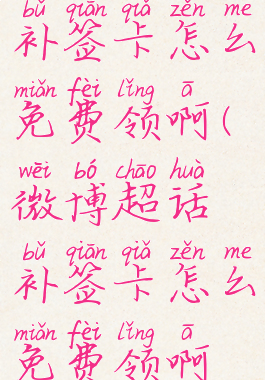 bǔ qiān qiǎ zěn me
补签卡怎么
miǎn fèi lǐng ā
免费领啊(
wēi bó chāo huà
微博超话
bǔ qiān qiǎ zěn me
补签卡怎么
miǎn fèi lǐng ā
免费领啊